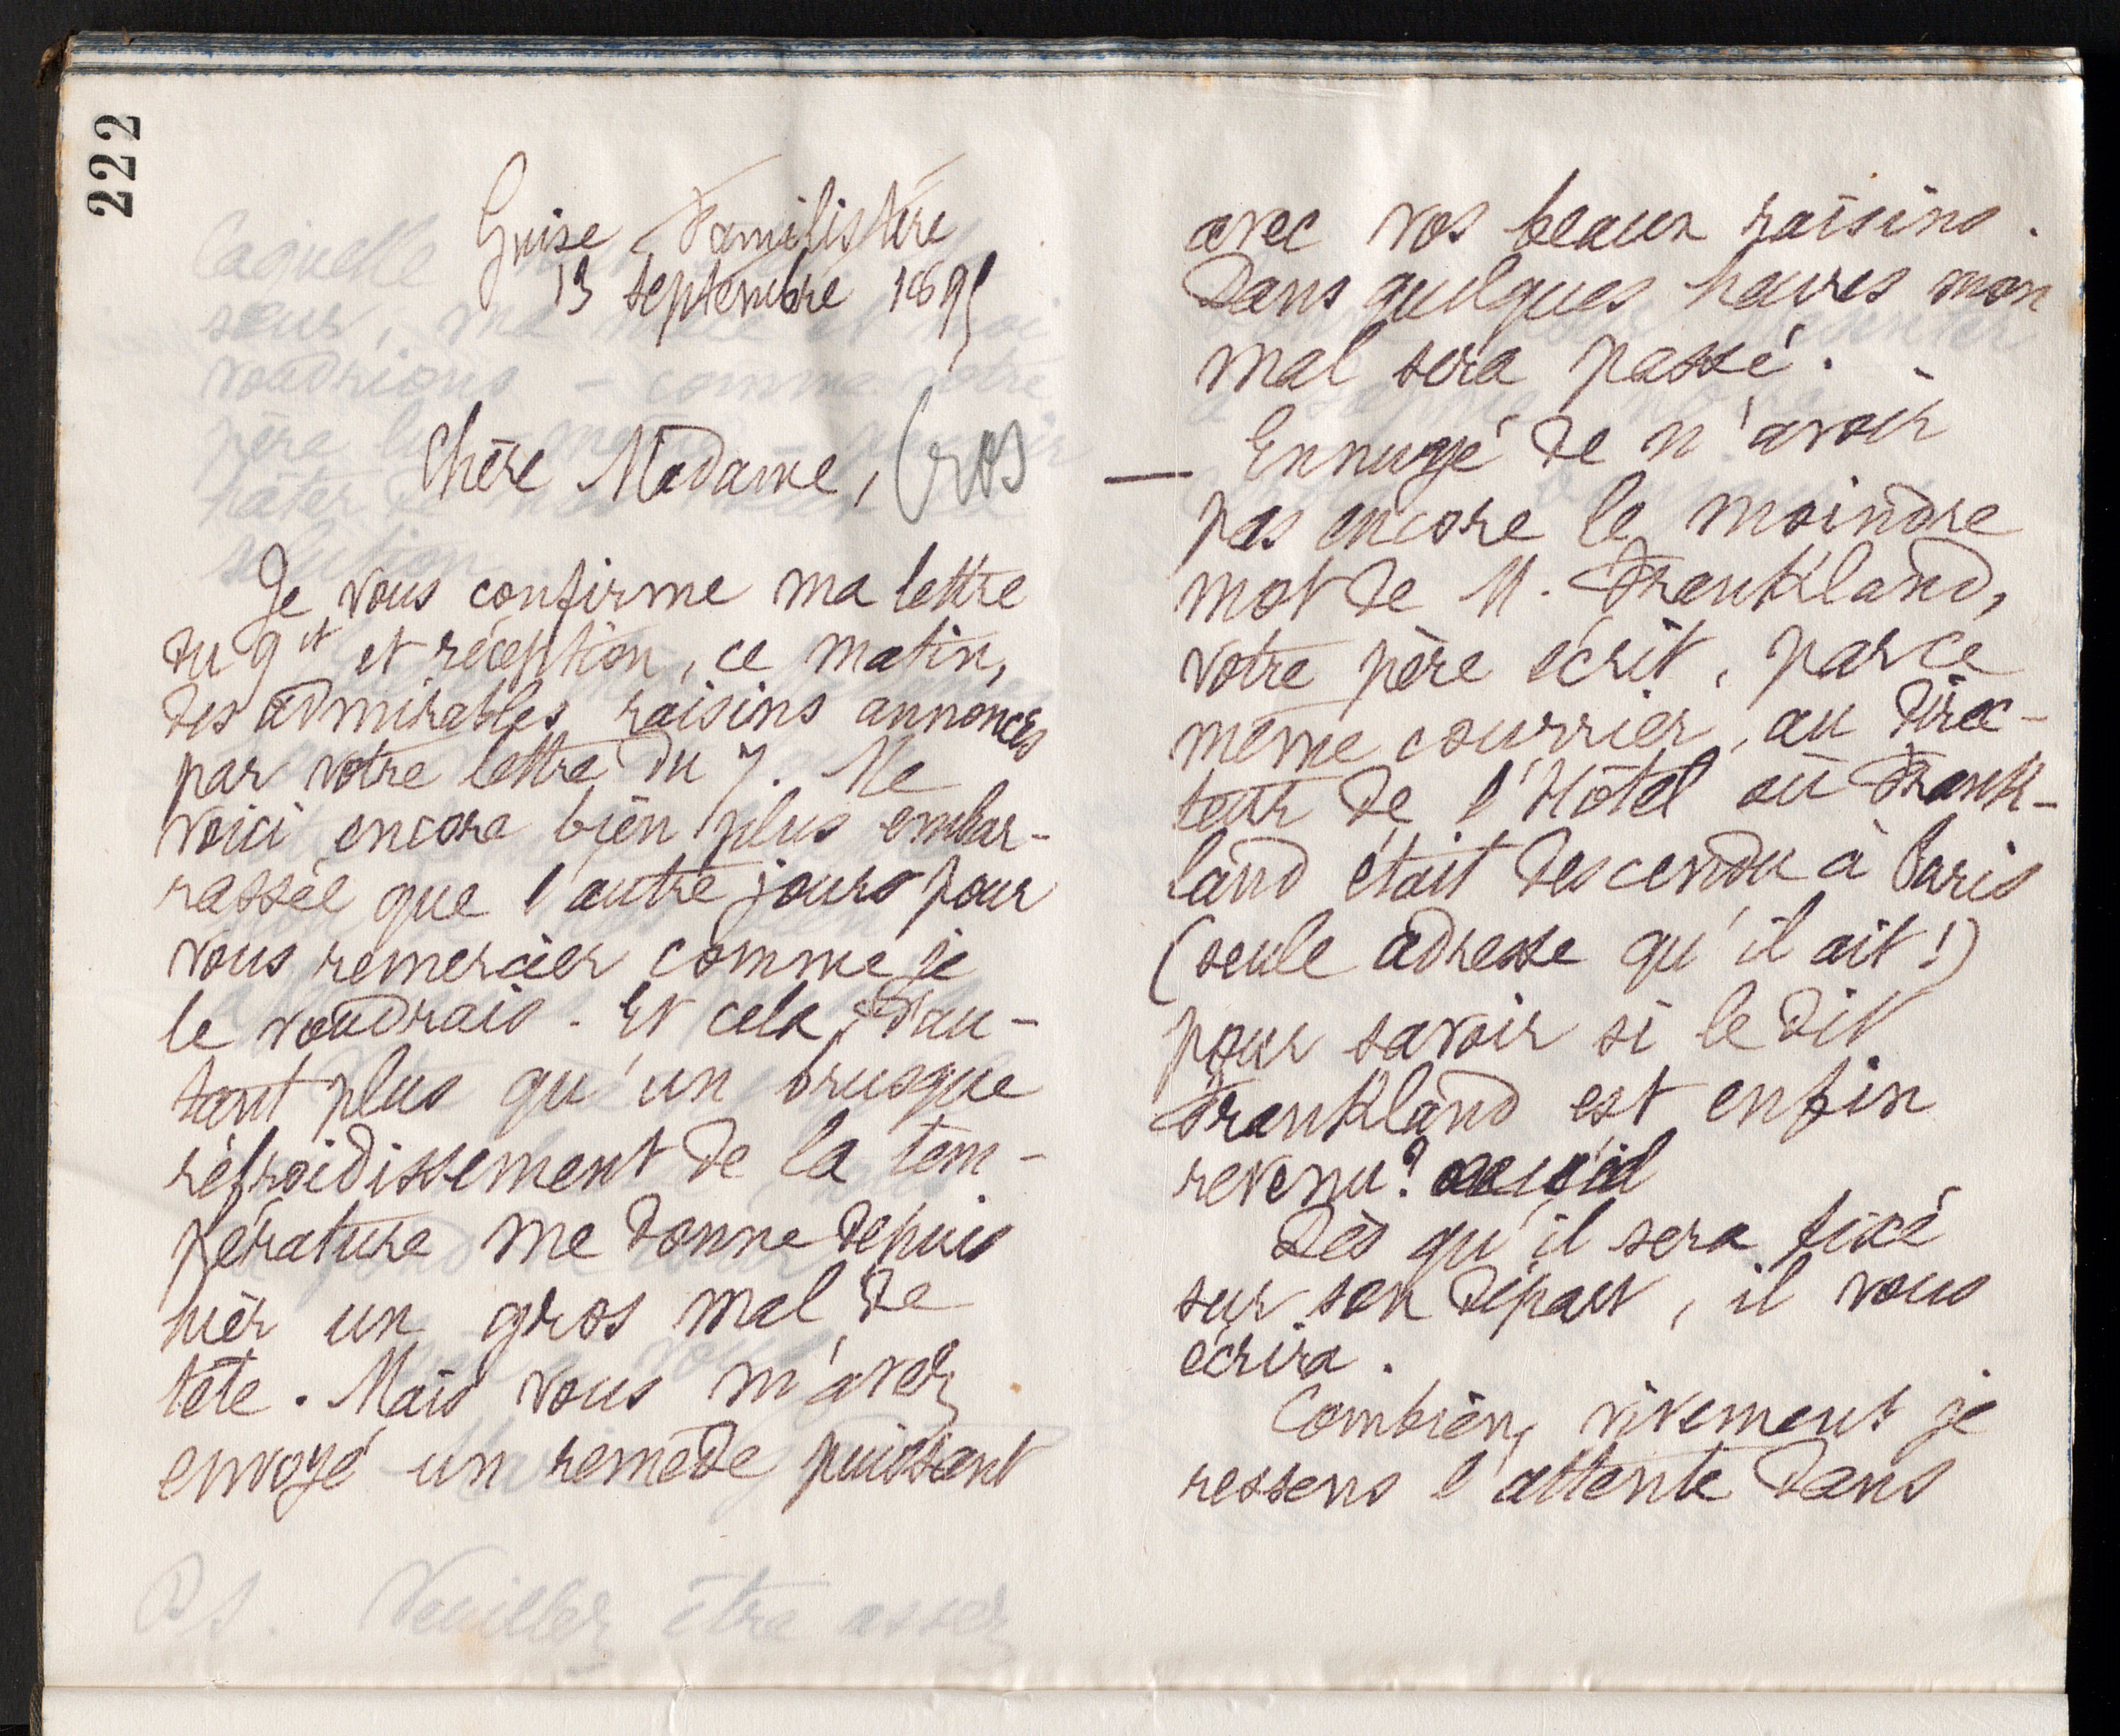 222
Guise Familistère
13 septembre 1895
Chère Madame, Cros
Je vous confirme ma lettre
du 9 ct et réception, ce matin,
des admirables raisins annoncés
par votre lettre du 7. Me
voici encore bien plus embar-
rassée que l'autre jours pour
vous remercier comme je
le voudrais. Et cela, d'au-
tant plus qu'un brusque
refroidissement de la tem-
pérature me donne depuis
hier un gros mal de
tête. Mais vous m'avez
envoyé un remède puissant
avec vos beaux raisins.
Dans quelques heures mon
mal sera passé.
— Ennuyé de n'avoir
pas encore le moindre
mot de M. Frankland,
votre père écrit, par ce
même courrier, au direc-
teur de l'Hôtel où Frank-
land était descendu à Paris
(seule adresse qu'il ait!)
pour savoir si le dit
Frankland est enfin
revenu?
Dès qu'il sera fixé
sur son départ, il vous
écrira.
Combien vivement je
ressens l'attente dans